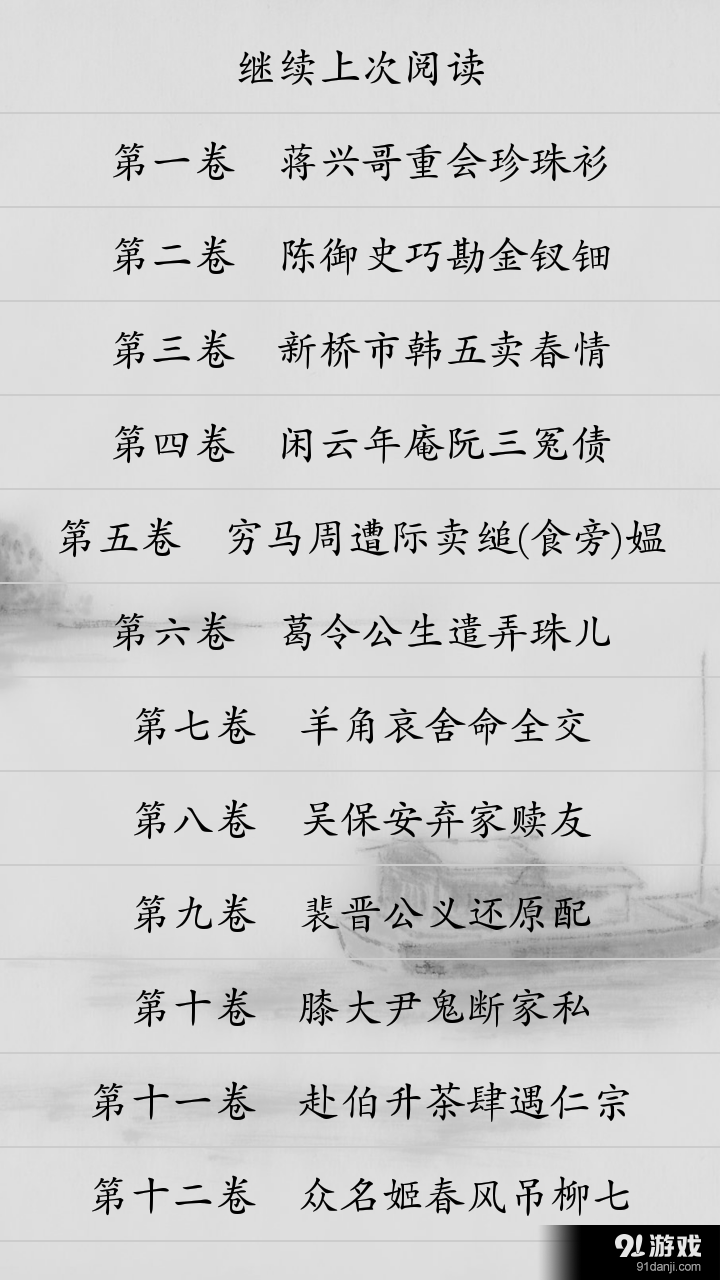 继续上次阅读
第一卷 蒋兴哥重会珍珠衫
第二卷 陈御史巧勘金钗钿
第三卷 新桥市韩五卖春情
第四卷 闲云年庵阮三冤债
第五卷 穷马周遭际卖缒(食旁)媪
第六卷 葛令公生遣弄珠儿
第七卷 羊角哀舍命全交
第八卷 吴保安弃家赎友
第九卷 裴晋公义还原配
第十卷 膝大尹鬼断家私
第十一卷 赴伯升茶肆遇仁宗
第十二卷 众名姬春风吊柳七
91游戏
91danji.com